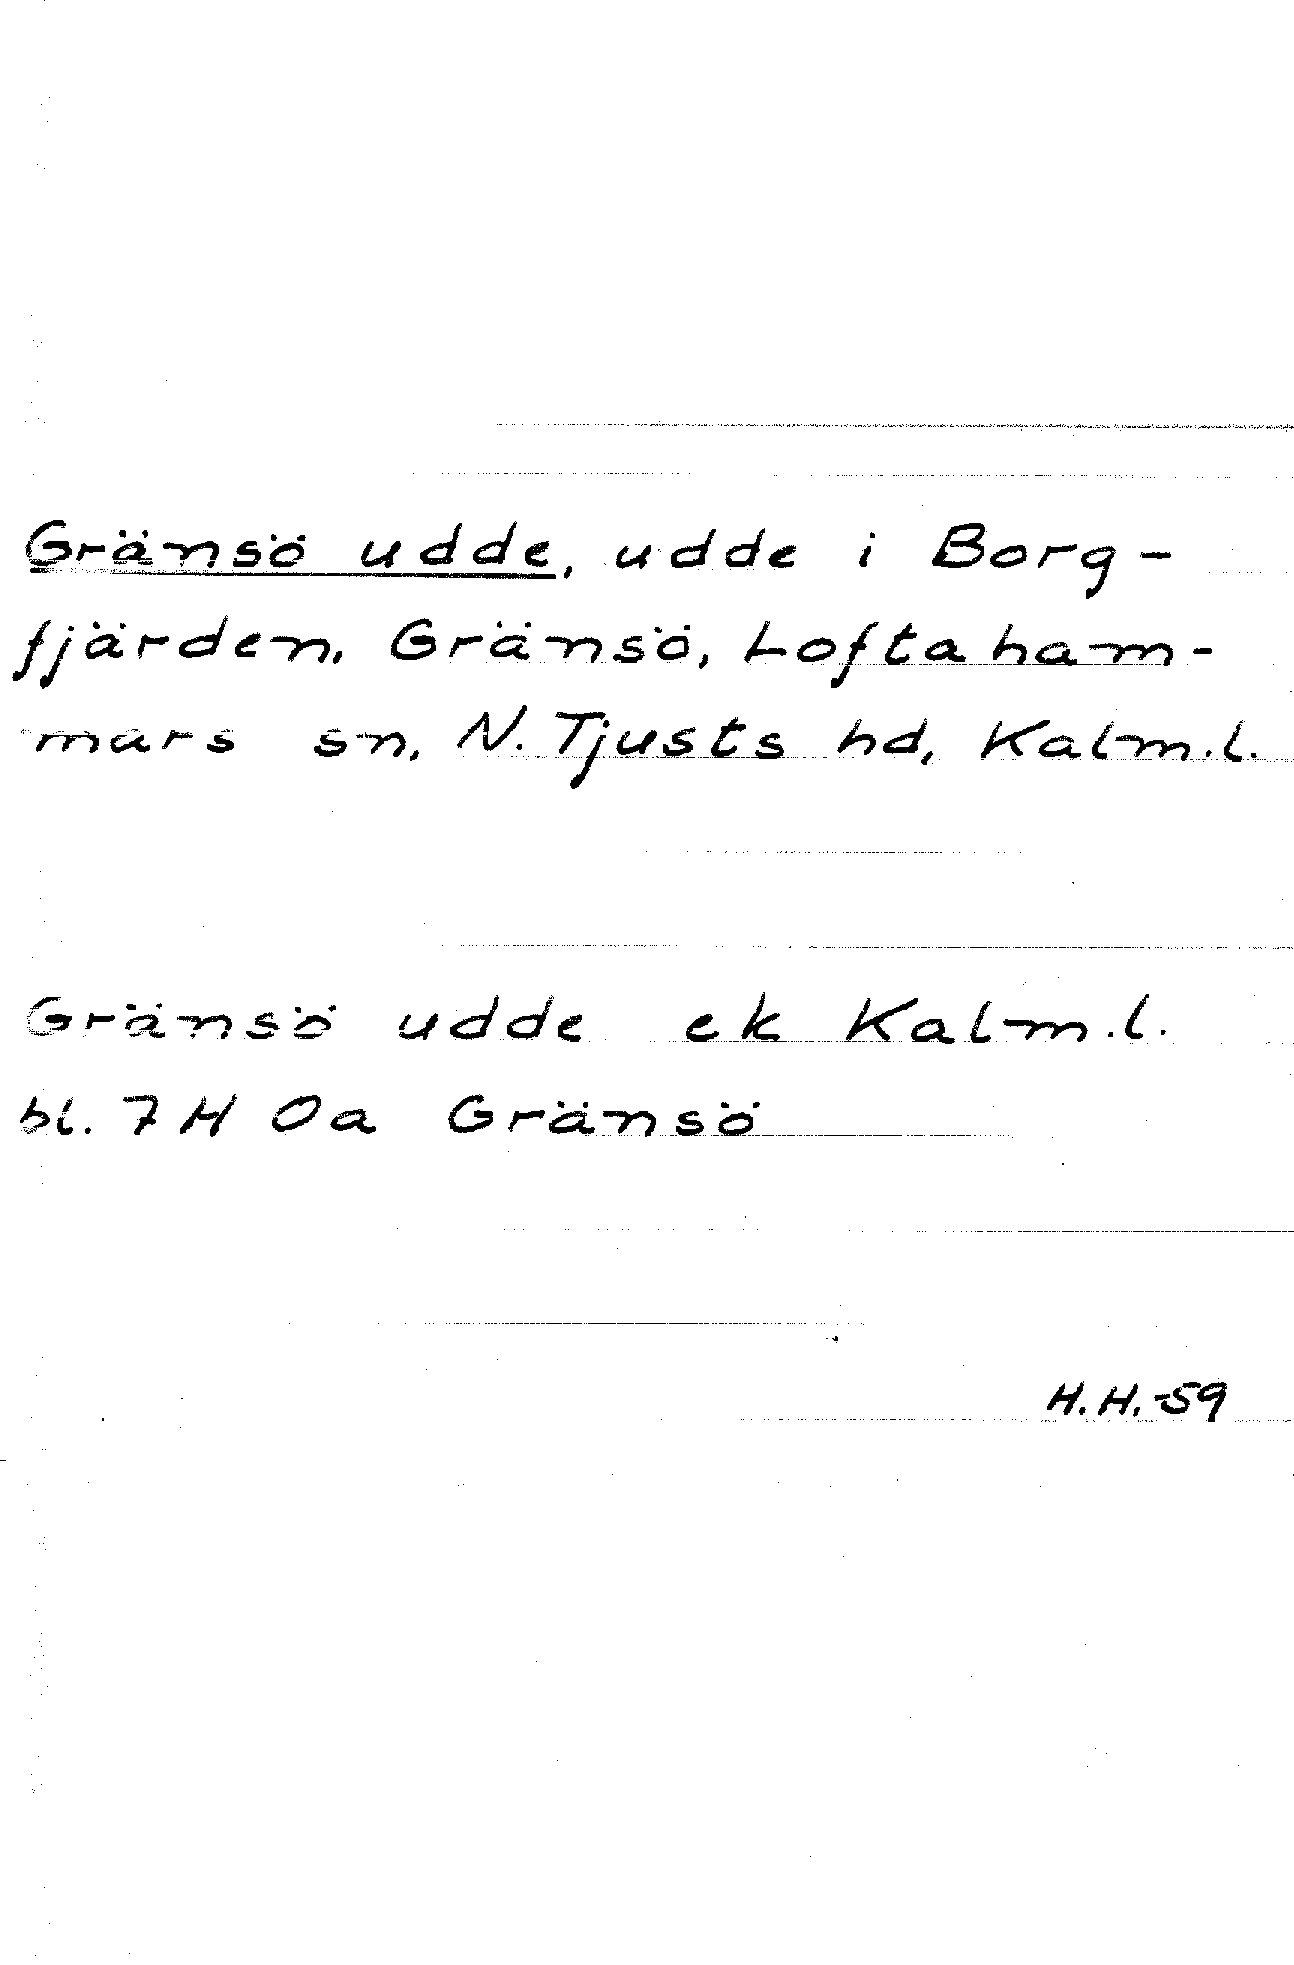 Gränsö udde, udde i Borg-
fjärden, Gränsö, Loftaham-
mars sn, N. Tjusts hd, Kalm.l.
Gränsö udde ek Kalm.l.
bl. 7 H 0a Gränsö
H.H.-59